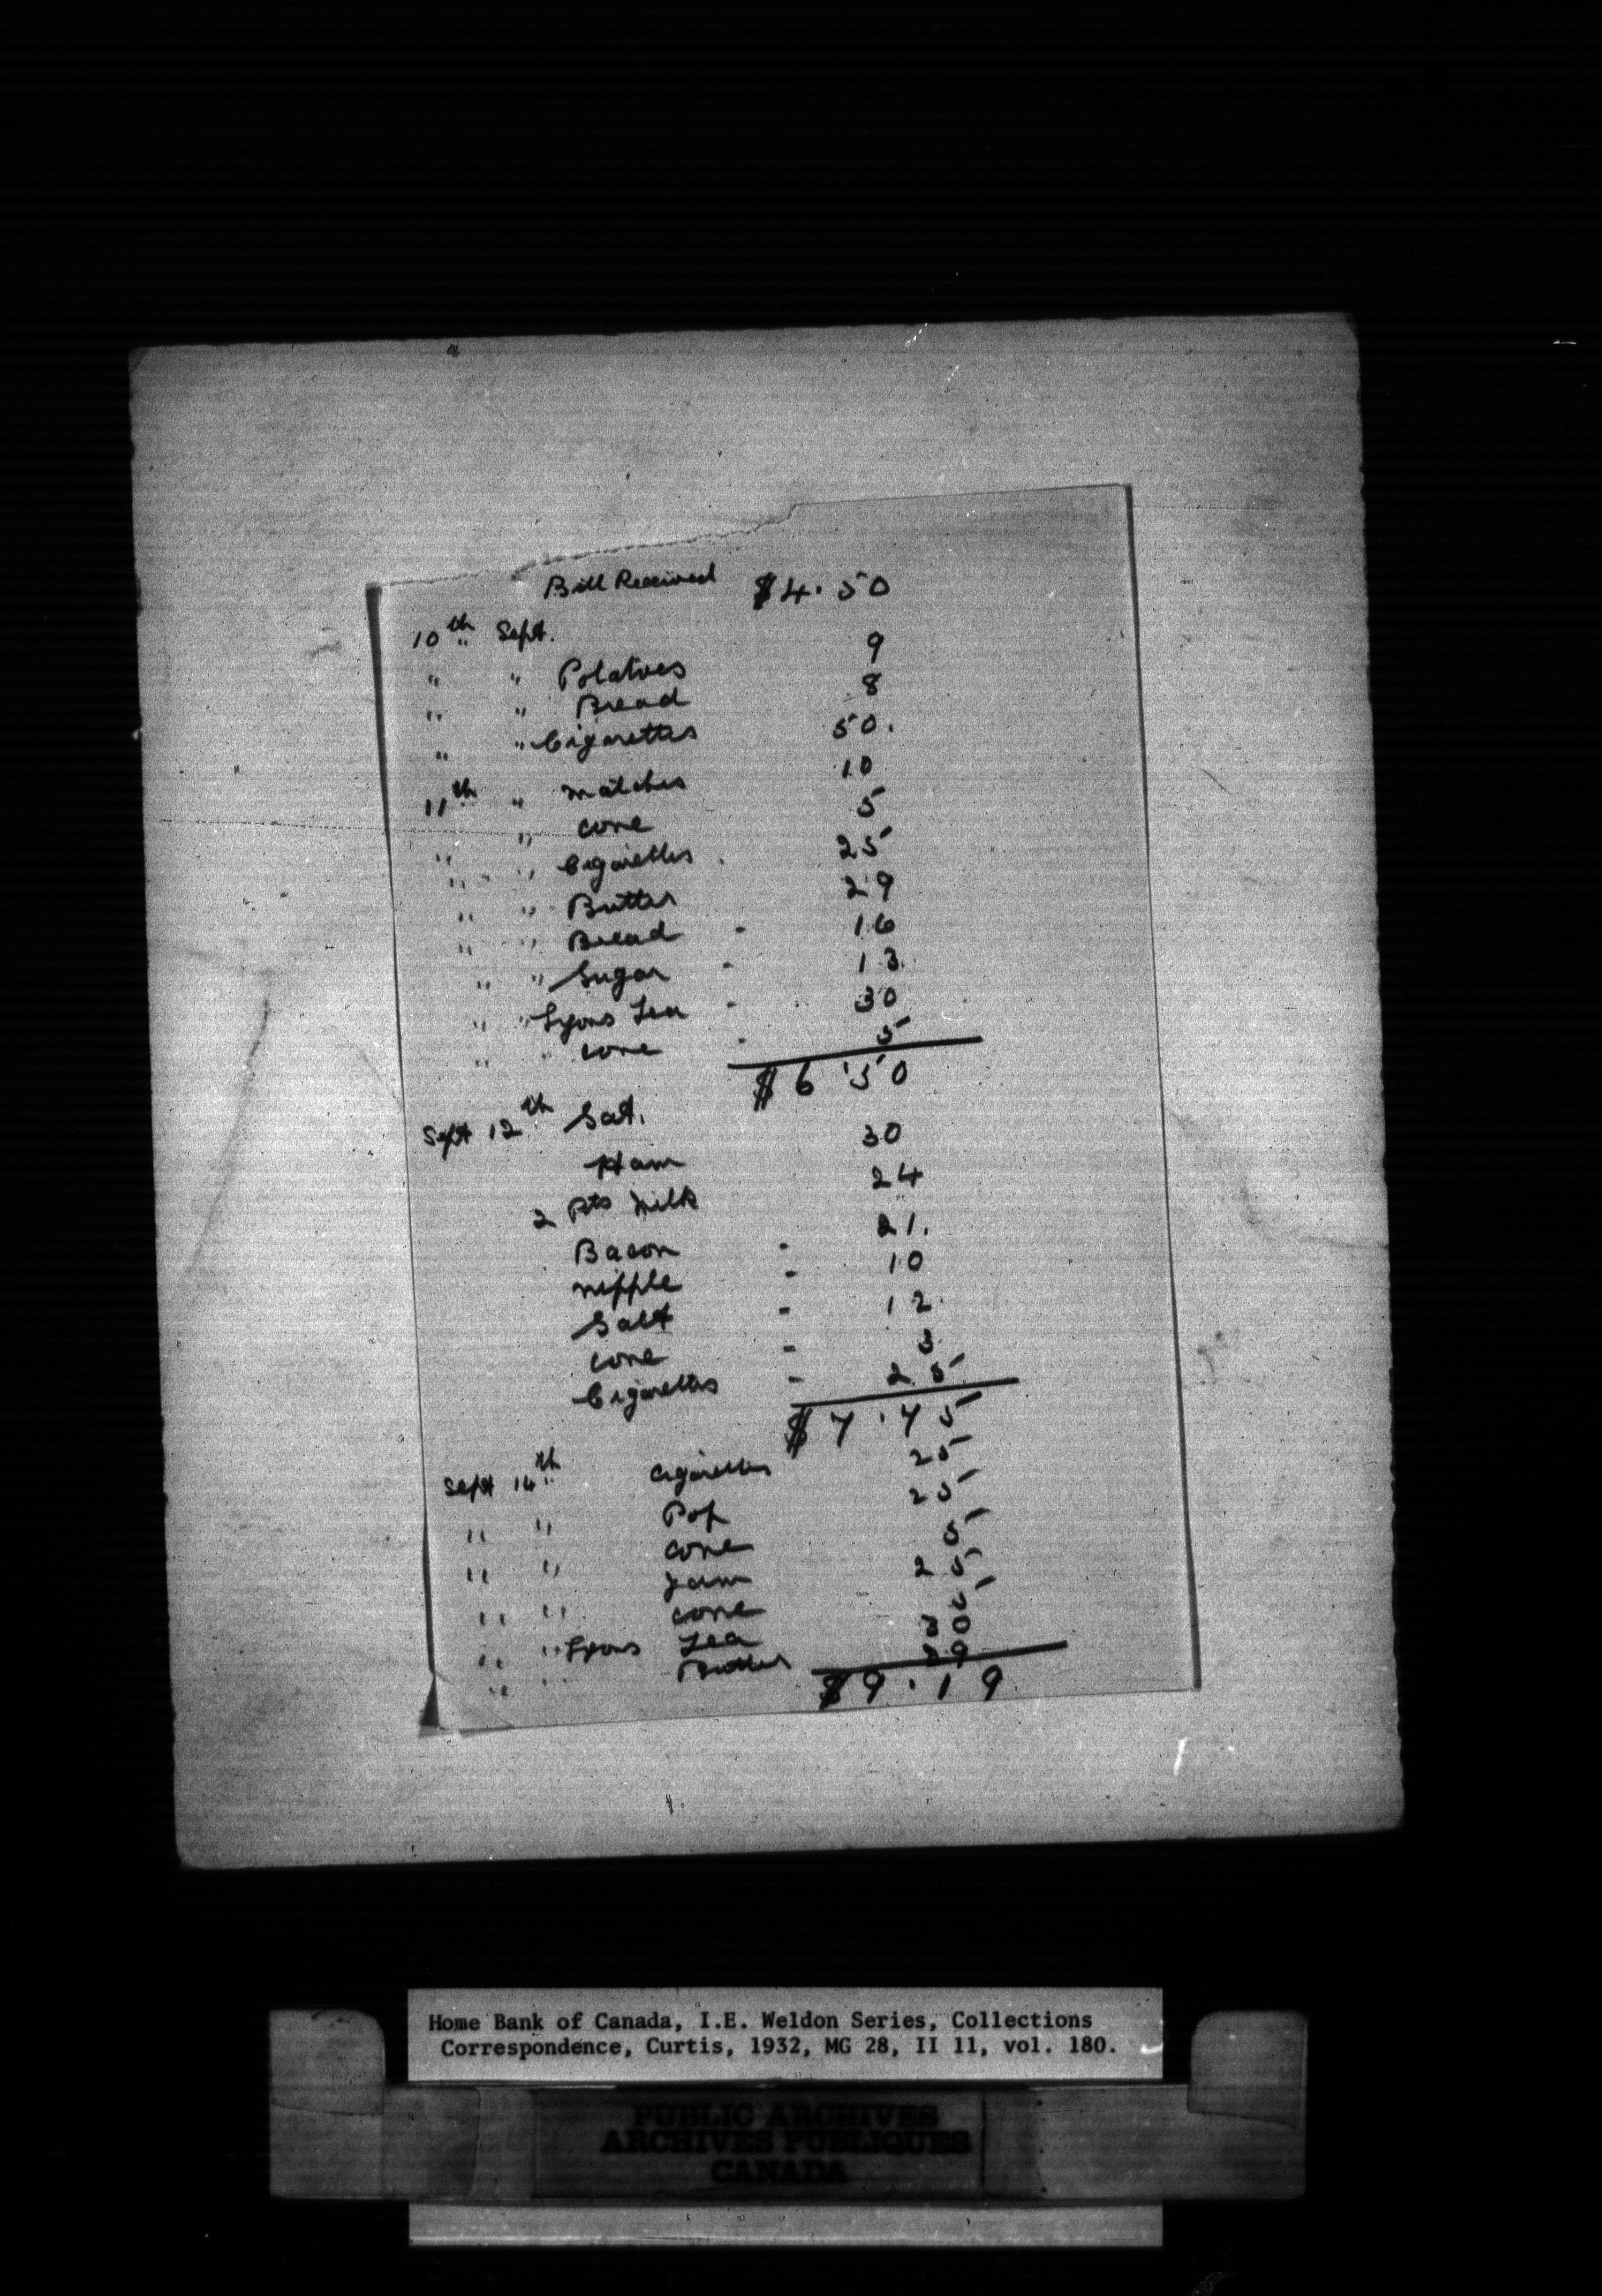 Bill Received $4.50
10th " Sept.
" " Potatoes 9
" " Bread 8
" " Cigarettes 50.
11th " matches 10
" " cone 5
" " Cigarettes . 25
" " Butter 29
" " Bread - 16
" " Sugar - 13.
" " Lyons Tea - 30
" " cone - 5
$6.50
Sept 12th Sat.
Ham 30
2 Pts Milk 24
Bacon - 21.
nipple - 10
Salt - 12.
cone - 3
Cigarettes - 25
$7.75
Sept 14th Cigarettes 25
" " Pop 25
" " cone 5
" " Jam 25
" " cone 5
" " Lyons Tea 30
" " Butter 29
$9.19
Home Bank of Canada, I.E. Weldon Series, Collections
Correspondence, Curtis, 1932, MG 28, II 11, vol. 180.
PUBLIC ARCHIVES
ARCHIVES PUBLIQUES
CANADA